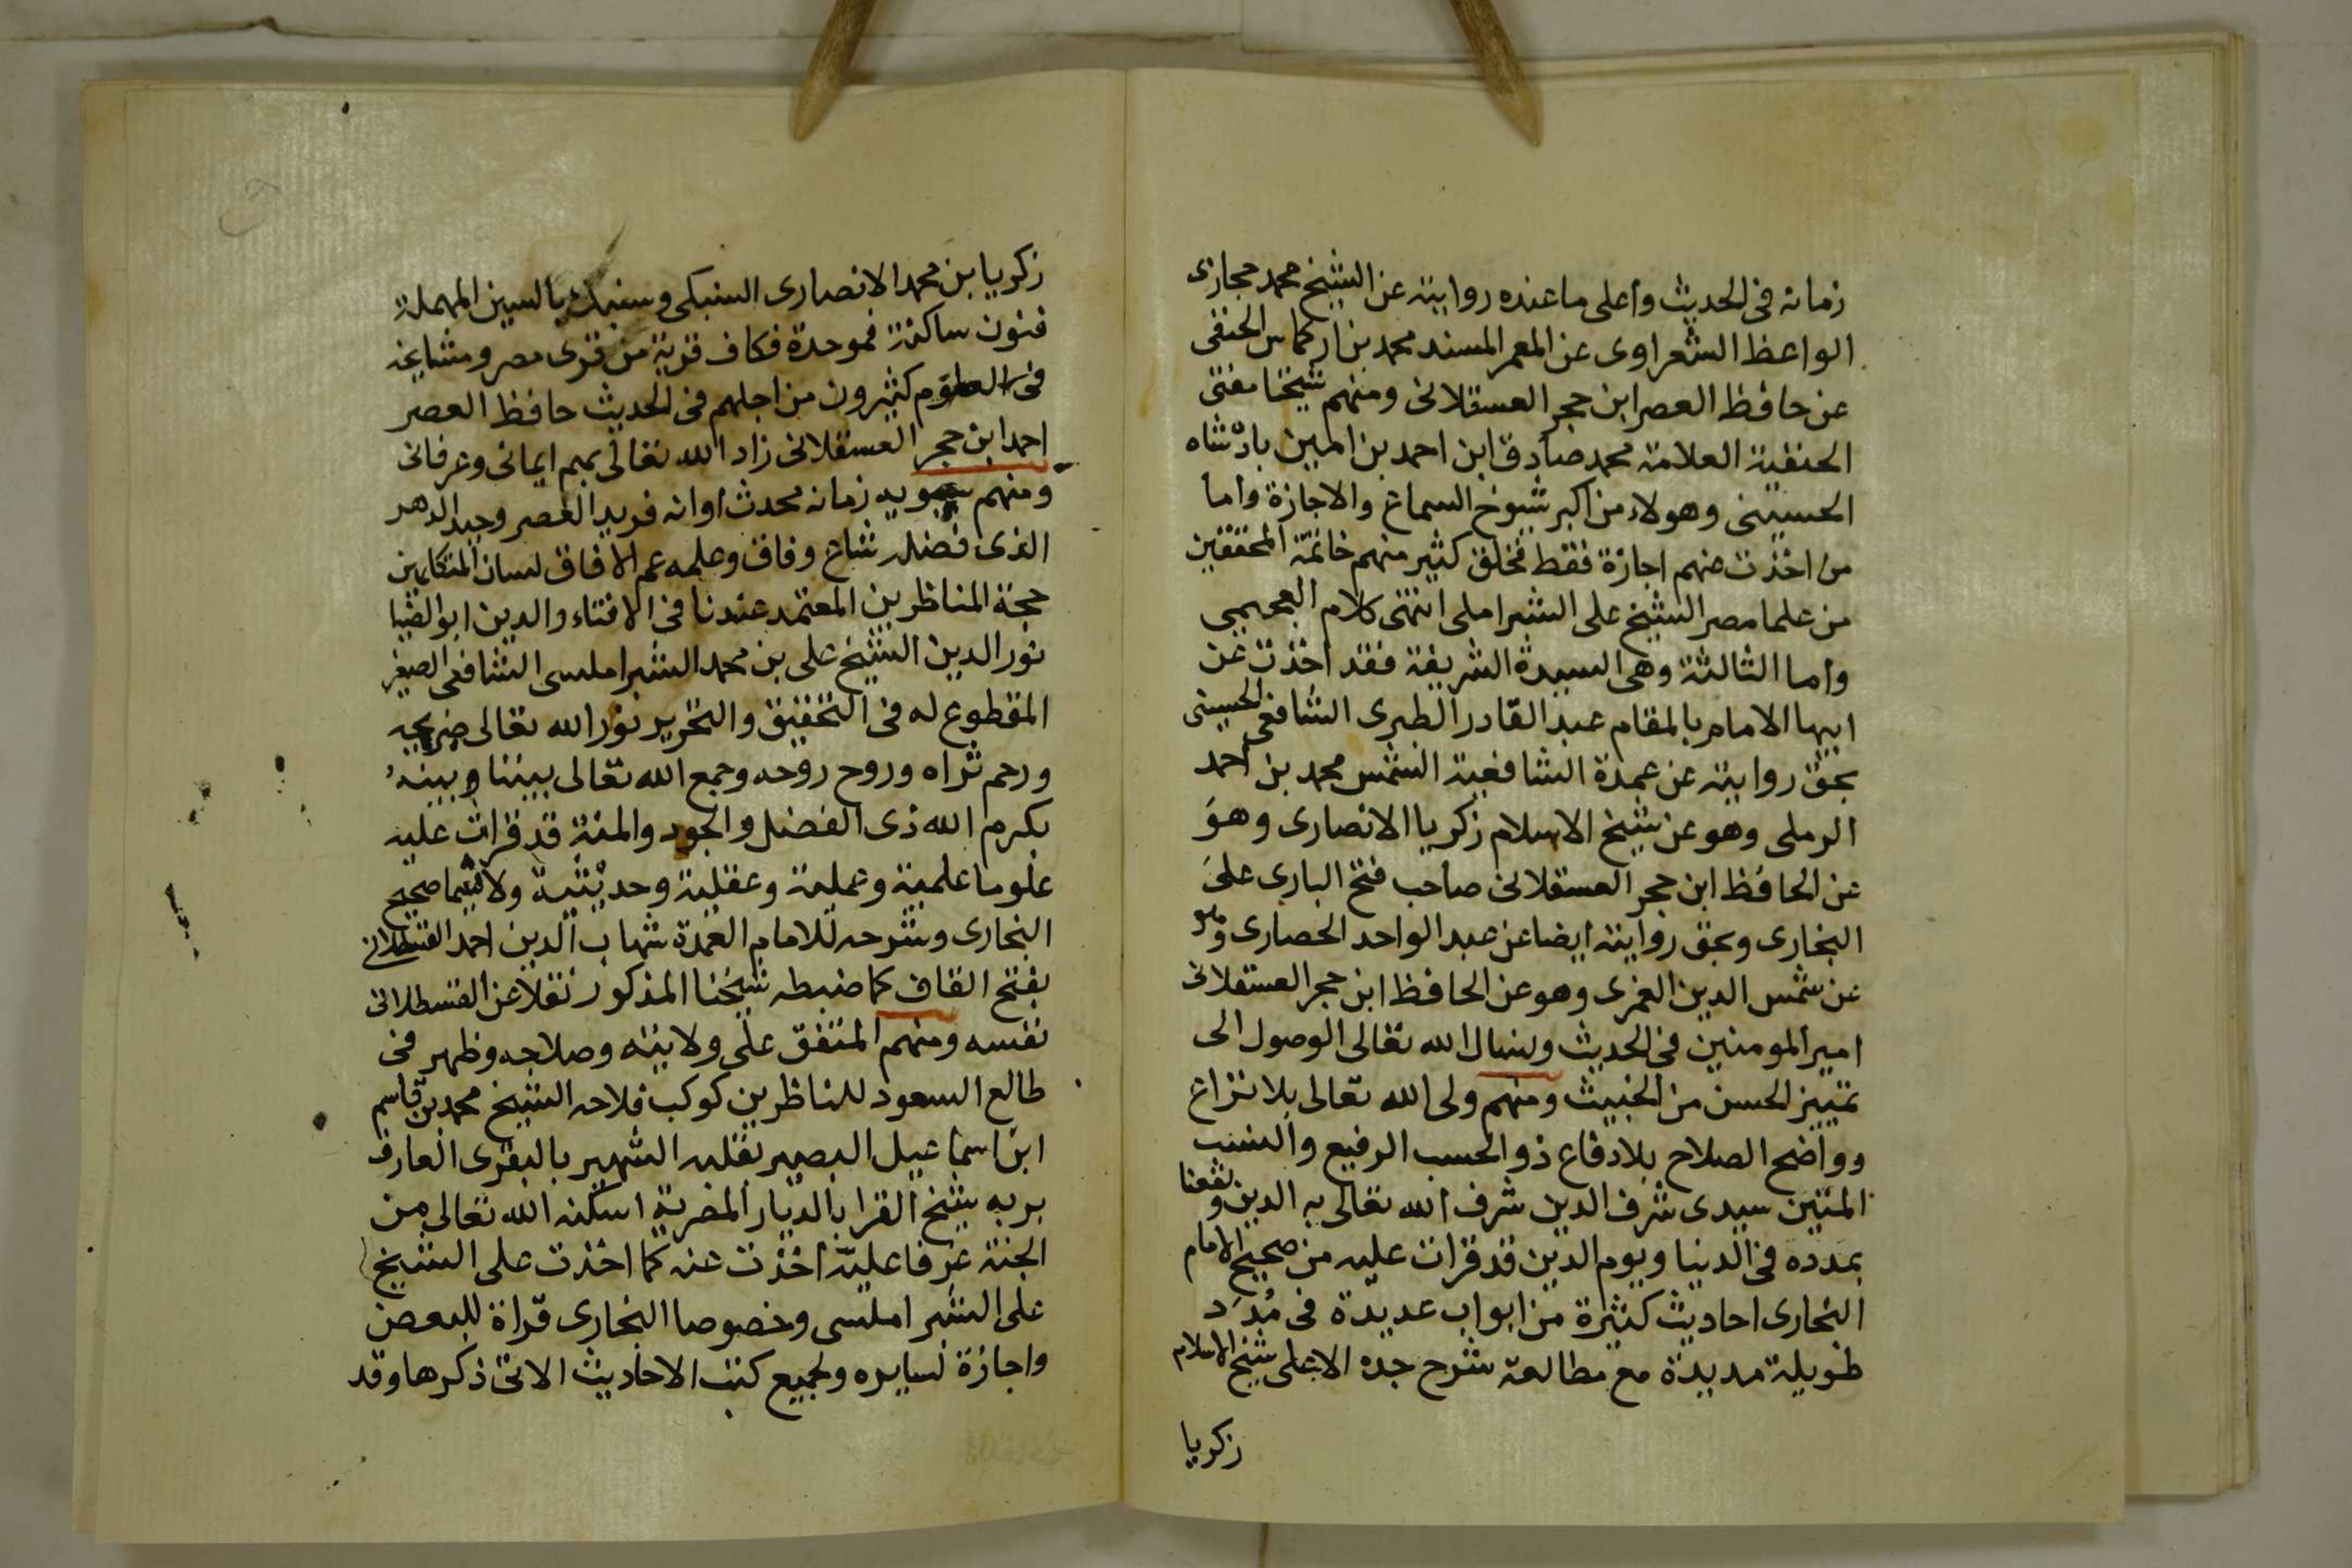 زمانه فى الحديث واعلى ما عنده روايته عن الشيخ محمد حجازى
الواعظ الشعراوى عن المعمر المسند محمد بن اركماس الحنفى
عن حافظ العصر ابن حجر العسقلانى ومنهم شيخنا مفتى
الحنفية العلامة محمد صادق ابن احمد بن امين بادشاه
الحسينى وهولاء من اكبر شيوخ السماع والاجازة واما
من اخذت منهم اجازة فقط فخلق كثير منهم خاتمة المحققين
من علما مصر الشيخ على الشبراملى انتهى كلام العجيمى
واما الثالثة وهى السيدة الشريفة فقد اخذت عن
ابيها الامام بالمقام عبد القادر الطبرى الشافعى الحسينى
بحق روايته عن عمدة الشافعية الشمس محمد بن احمد
الرملى وهو عن شيخ الاسلام زكريا الانصارى وهو
عن الحافظ ابن حجر العسقلانى صاحب فتح البارى على
البخارى وبحق روايته ايضا عن عبد الواحد الحصارى وهو
عن شمس الدين الغمرى وهو عن الحافظ ابن حجر العسقلانى
امير المومنين فى الحديث ونسال الله تعالى الوصول الى
تمييز الحسن من الخبيث ومنهم ولى الله تعالى بلا نزاع
وواضح الصلاح بلا دفاع ذو الحسب الرفيع والنسب
المتين سيدى شرف الدين شرف الله تعالى به الدين ونفعنا
بمدده فى الدنيا ويوم الدين قد قرات عليه من صحيح الامام
البخارى احاديث كثيرة من ابواب عديدة فى مُدَد
طويلة مديدة مع مطالعة شرح جده الاعلى شيخ الاسلام
زكريا
زكريا بن محمد الانصارى السنبكى وسنبك بالسين المهملة
فنون ساكنة فموحدة فكاف قرية من قرى مصر ومشايخه
فى العلوم كثيرون من اجلهم فى الحديث حافظ العصر
احمد ابن حجر العسقلانى زاد الله تعالى بهم ايمانى وعرفانى
ومنهم سيبويه زمانه محدث اوانه فريد العصر وحيد الدهر
الذى فضله شاع وفاق وعلمه عم الافاق لسان المتكلمين
حجة المناظرين المعتمد عندنا فى الافتاء والدين ابو الضيا
نور الدين الشيخ على بن محمد الشبراملسى الشافعى الصغير
المقطوع له فى التحقيق والتحرير نور الله تعالى ضريحه
ورحم ثراه وروح روحه وجمع الله تعالى بيننا وبينه
بكرم الله ذى الفضل والجود والمنة قد قرات عليه
علوما علمية وعملية وعقلية وحديثية ولا سيما صحيح
البخارى وشرحه للامام العمدة شهاب الدين احمد القسطلانى
بفتح القاف كما ضبطه شيخنا المذكور نقلا عن القسطلانى
نفسه ومنهم المتفق على ولايته وصلاحه وظهر فى
طالع السعود للناظرين كوكب فلاحه الشيخ محمد بن قاسم
ابن اسماعيل البصير بقلبه الشهير بالبقرى العارف
بربه شيخ القرا بالديار المصرية اسكنه الله تعالى من
الجنة غرفا علية اخذت عنه كما اخذت على الشيخ
على الشبراملسى وخصوصا البخارى قراة للبعض
واجازة لسايره ولجميع كتب الاحاديث الاتى ذكرها وقد